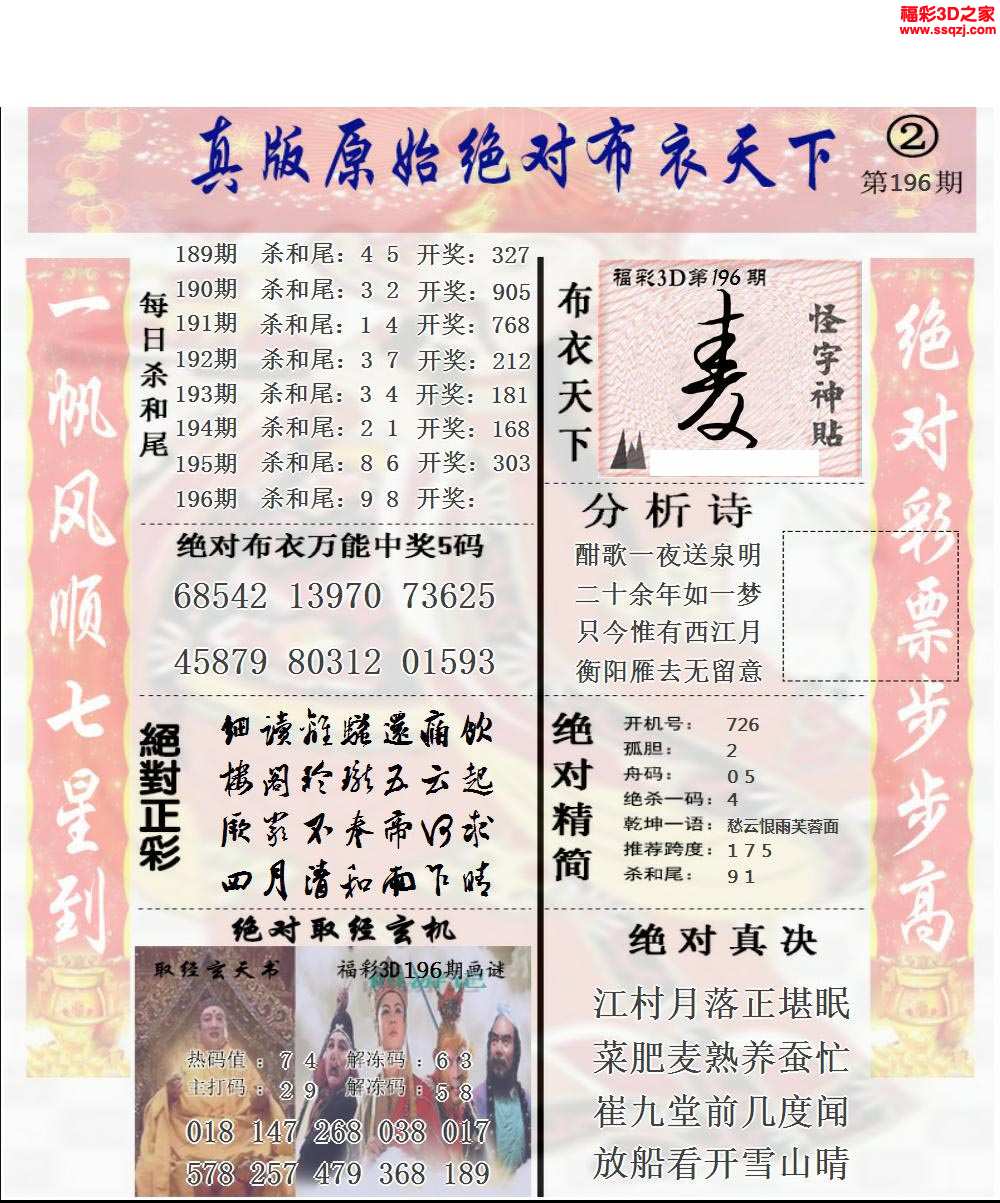 福彩3D之家
www.ssqzj.com
真版原始绝对布衣天下
②
第196期
一帆风顺七星到
每日杀和尾
189期 杀和尾：4 5 开奖：327
190期 杀和尾：3 2 开奖：905
191期 杀和尾：1 4 开奖：768
192期 杀和尾：3 7 开奖：212
193期 杀和尾：3 4 开奖：181
194期 杀和尾：2 1 开奖：168
195期 杀和尾：8 6 开奖：303
196期 杀和尾：9 8 开奖：
绝对布衣万能中奖5码
68542 13970 73625
45879 80312 01593
絕對正彩
细读離騷還痛飲
楼阁玲珑五云起
厥兆不奉帝何求
四月清和雨乍晴
绝对取经玄机
取经玄天书
福彩3D196期画谜
热码值：7 4 解冻码：6 3
主打码：2 9 解冻码：5 8
018 147 268 038 017
578 257 479 368 189
布衣天下
福彩3D第196期
怪字神貼
分析诗
酣歌一夜送泉明
二十余年如一梦
只今惟有西江月
衡阳雁去无留意
绝对精简
开机号：726
孤胆：2
舟码：0 5
绝杀一码：4
乾坤一语：愁云恨雨芙蓉面
推荐跨度：1 7 5
杀和尾：9 1
绝对真决
江村月落正堪眠
菜肥麦熟养蚕忙
崔九堂前几度闻
放船看开雪山晴
绝对彩票步步高